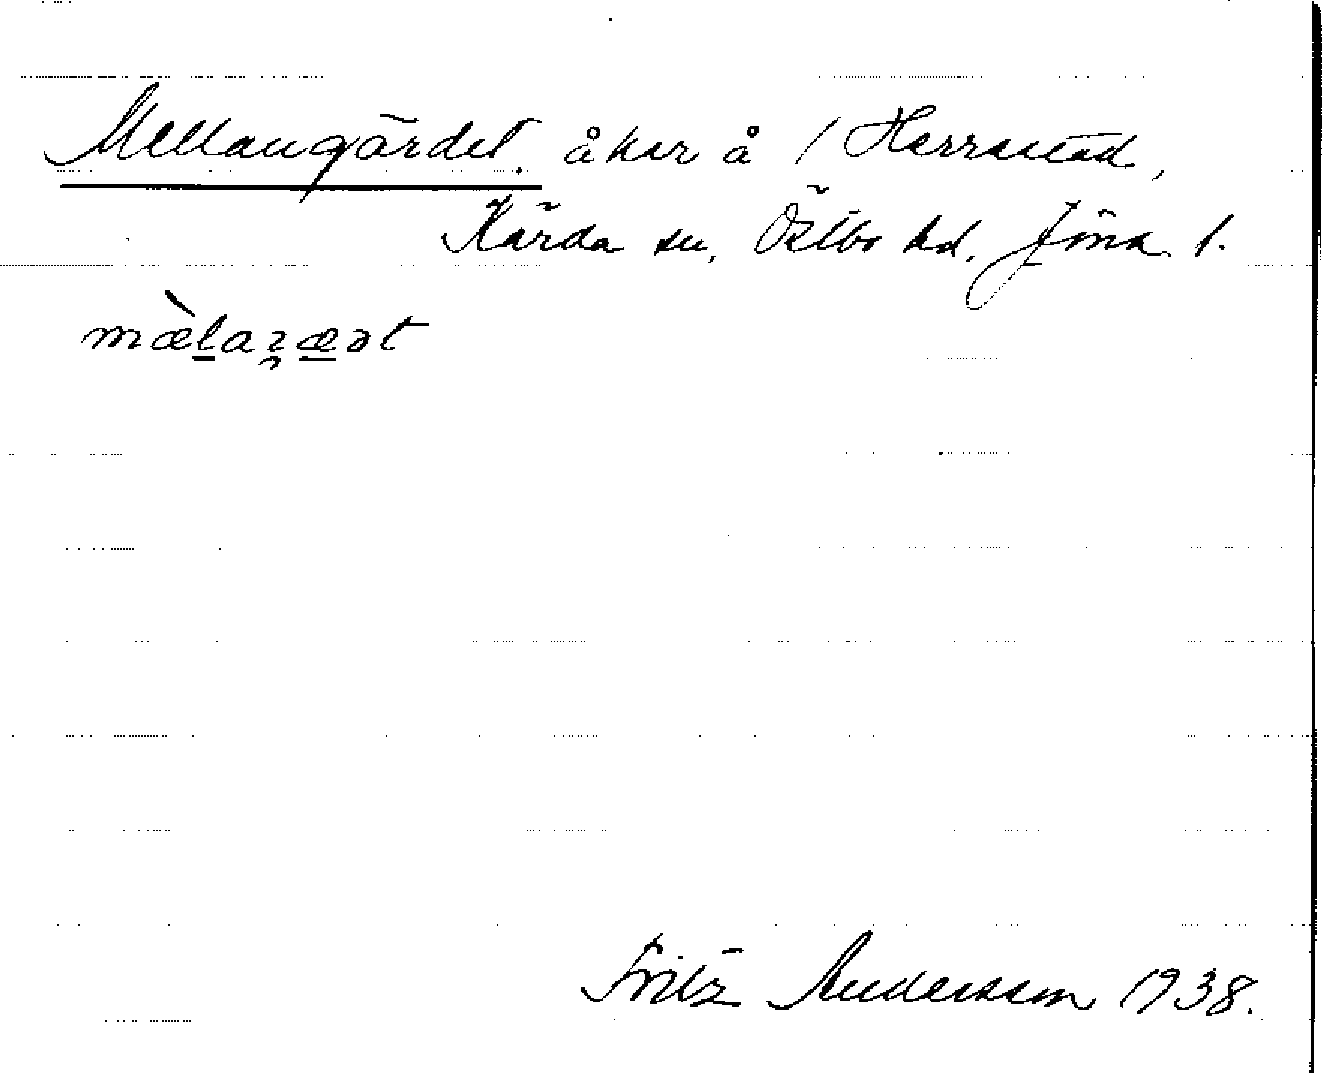 Mellangärdet, åker å / Herrestad,
Kärda sn, Östbo hd, Jönk. l.
mæ̀laʒæət
Fritz Andersson 1938.